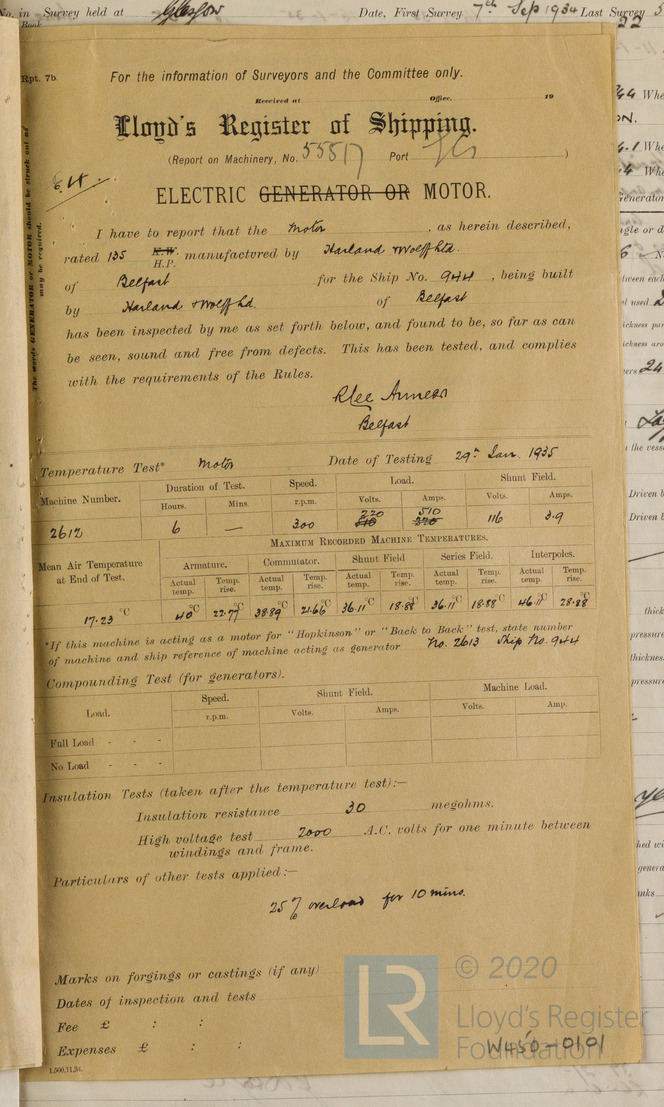 No. in Survey held at Glasgow Date, First Survey 7th Sep 1934 Last Survey
Book
22
Rpt. 7b.
For the information of Surveyors and the Committee only.
Received at Office. 19
Lloyd's Register of Shipping.
(Report on Machinery, No. 55817 Port )
ELECTRIC GENERATOR OR MOTOR.
The words GENERATOR or MOTOR should be struck out as
may be required.
I have to report that the Motor , as herein described,
rated 135 K.W. H.P. manufactured by Harland & Wolff Ltd.
of Belfast for the Ship No. 944 , being built
by Harland & Wolff Ld. of Belfast
has been inspected by me as set forth below, and found to be, so far as can
be seen, sound and free from defects. This has been tested, and complies
with the requirements of the Rules.
Belfast
Temperature Test* Motor Date of Testing 29th Jan. 1935
Machine Number. Duration of Test. Speed. Load. Shunt Field.
Hours. Mins. r.p.m. Volts. Amps. Volts. Amps.
220 510
2612 6 — 300 510 220 116 3.9
MAXIMUM RECORDED MACHINE TEMPERATURES.
Mean Air Temperature at End of Test. Armature. Commutator. Shunt Field Series Field. Interpoles.
Actual temp. Temp. rise. Actual temp. Temp. rise. Actual temp. Temp. rise. Actual temp. Temp. rise. Actual temp. Temp. rise.
17.23 °C 40 °C 22.77 °C 38.89 °C 21.66 °C 36.11 °C 18.88 °C 36.11 °C 18.88 °C 46.11 °C 28.88 °C
*If this machine is acting as a motor for "Hopkinson" or "Back to Back" test, state number
of machine and ship reference of machine acting as generator No. 2613 Ship No. 944
Compounding Test (for generators).
Load. Speed. Shunt Field. Machine Load.
r.p.m. Volts. Amps. Volts. Amp.
Full Load - - -
No Load - - -
Insulation Tests (taken after the temperature test):—
Insulation resistance 30 megohms.
High voltage test 2000 A.C. volts for one minute between
windings and frame.
Particulars of other tests applied:—
25% overload for 10 mins.
Marks on forgings or castings (if any)
Dates of inspection and tests
Fee £ : :
Expenses £ : :
1,500,11,34.
LR
© 2020
Lloyd's Register
Foundation
W450-0101